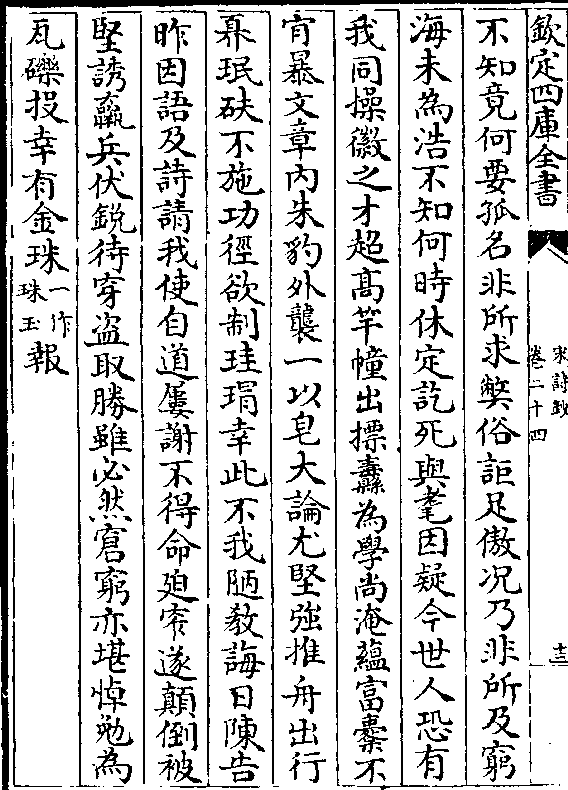 欽定四庫全書
宋詩鈔
卷二十四
十三
不知竟何要孤名非所求獘俗詎足傲况乃非所及窮
海未為浩不知何時休定訖死與耄因疑今世人恐有
我同操徽之才超髙竿幢出摽纛為學尚淹藴富橐不
肯暴文章内朱豹外襲一以皂大論尤堅強推舟出行
奡珉砆不施功徑欲制珪瑁幸此不我陋教誨日陳告
昨因語及詩請我使自道屢謝不得命廹窄遂顛倒被
堅誘羸兵伏鋭待穿盗取勝雖必然窘窮亦堪悼勉為
瓦礫投幸有金珠一作珠玉報